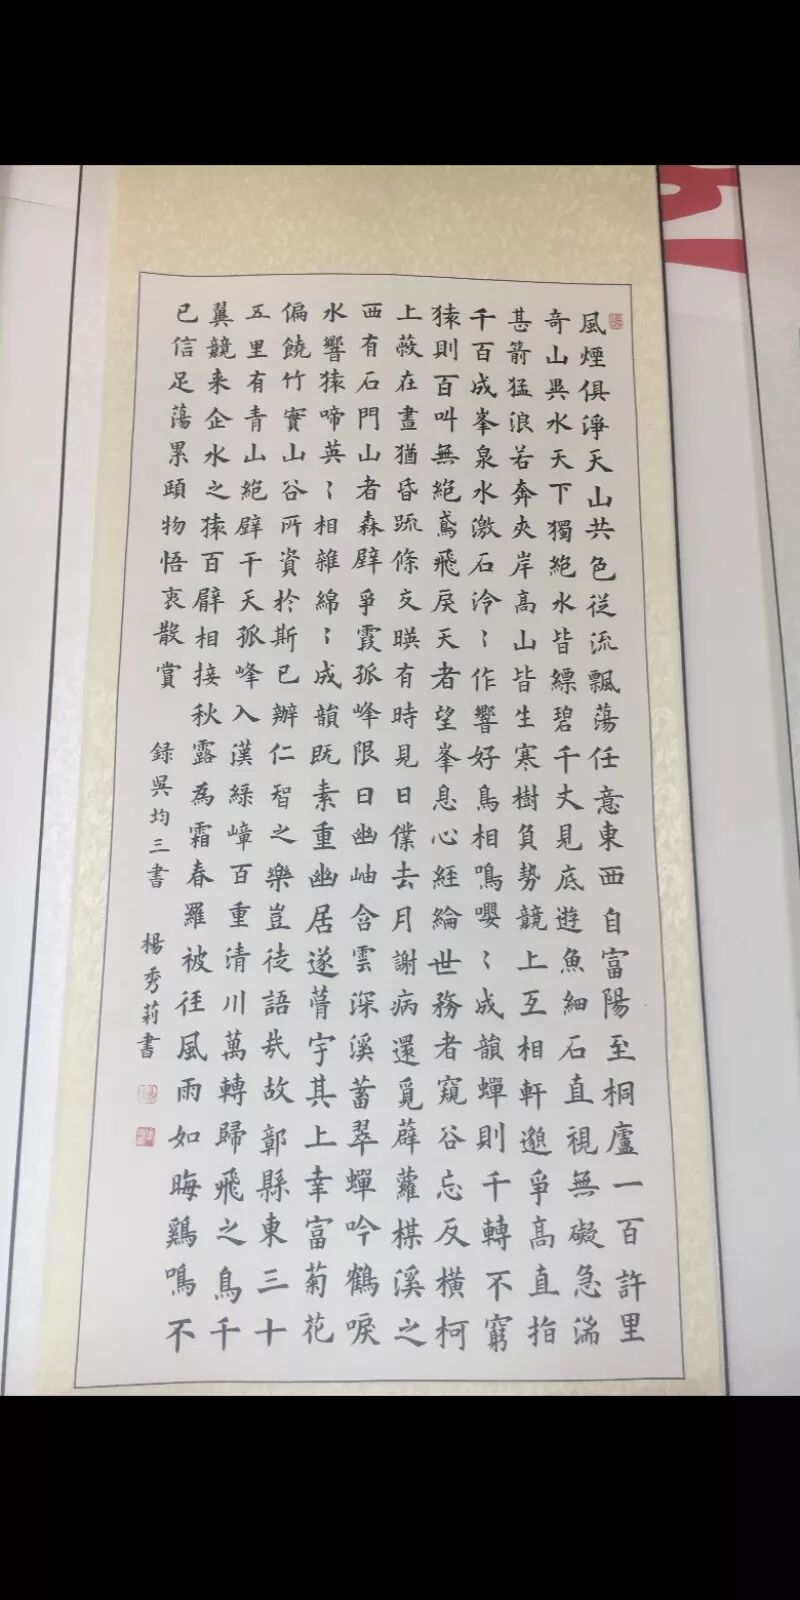 風煙俱淨天山共色從流飄蕩任意東西自富陽至桐廬一百許里
奇山異水天下獨絕水皆縹碧千丈見底遊魚細石直視無礙急湍
甚箭猛浪若奔夾岸高山皆生寒樹負勢競上互相軒邈爭高直指
千百成峯泉水激石泠〻作響好鳥相鳴嚶〻成韻蟬則千轉不窮
猿則百叫無絕鳶飛戾天者望峯息心經綸世務者窺谷忘反橫柯
上蔽在晝猶昏疏條交暎有時見日僕去月謝病還覓薜蘿楳溪之
西有石門山者森壁爭霞孤峰限日幽岫含雲深溪蓄翠蟬吟鶴唳
水響猿啼英〻相雜綿〻成韻既素重幽居遂葺宇其上幸富菊花
偏饒竹實山谷所資於斯已辦仁智之樂豈徒語哉故鄣縣東三十
五里有青山絕壁干天孤峰入漢綠嶂百重清川萬轉歸飛之鳥千
翼競来企水之猿百臂相接秋露為霜春羅被徑風雨如晦鷄鳴不
已信足蕩累頤物悟衷散賞
録吳均三書 楊秀莉書